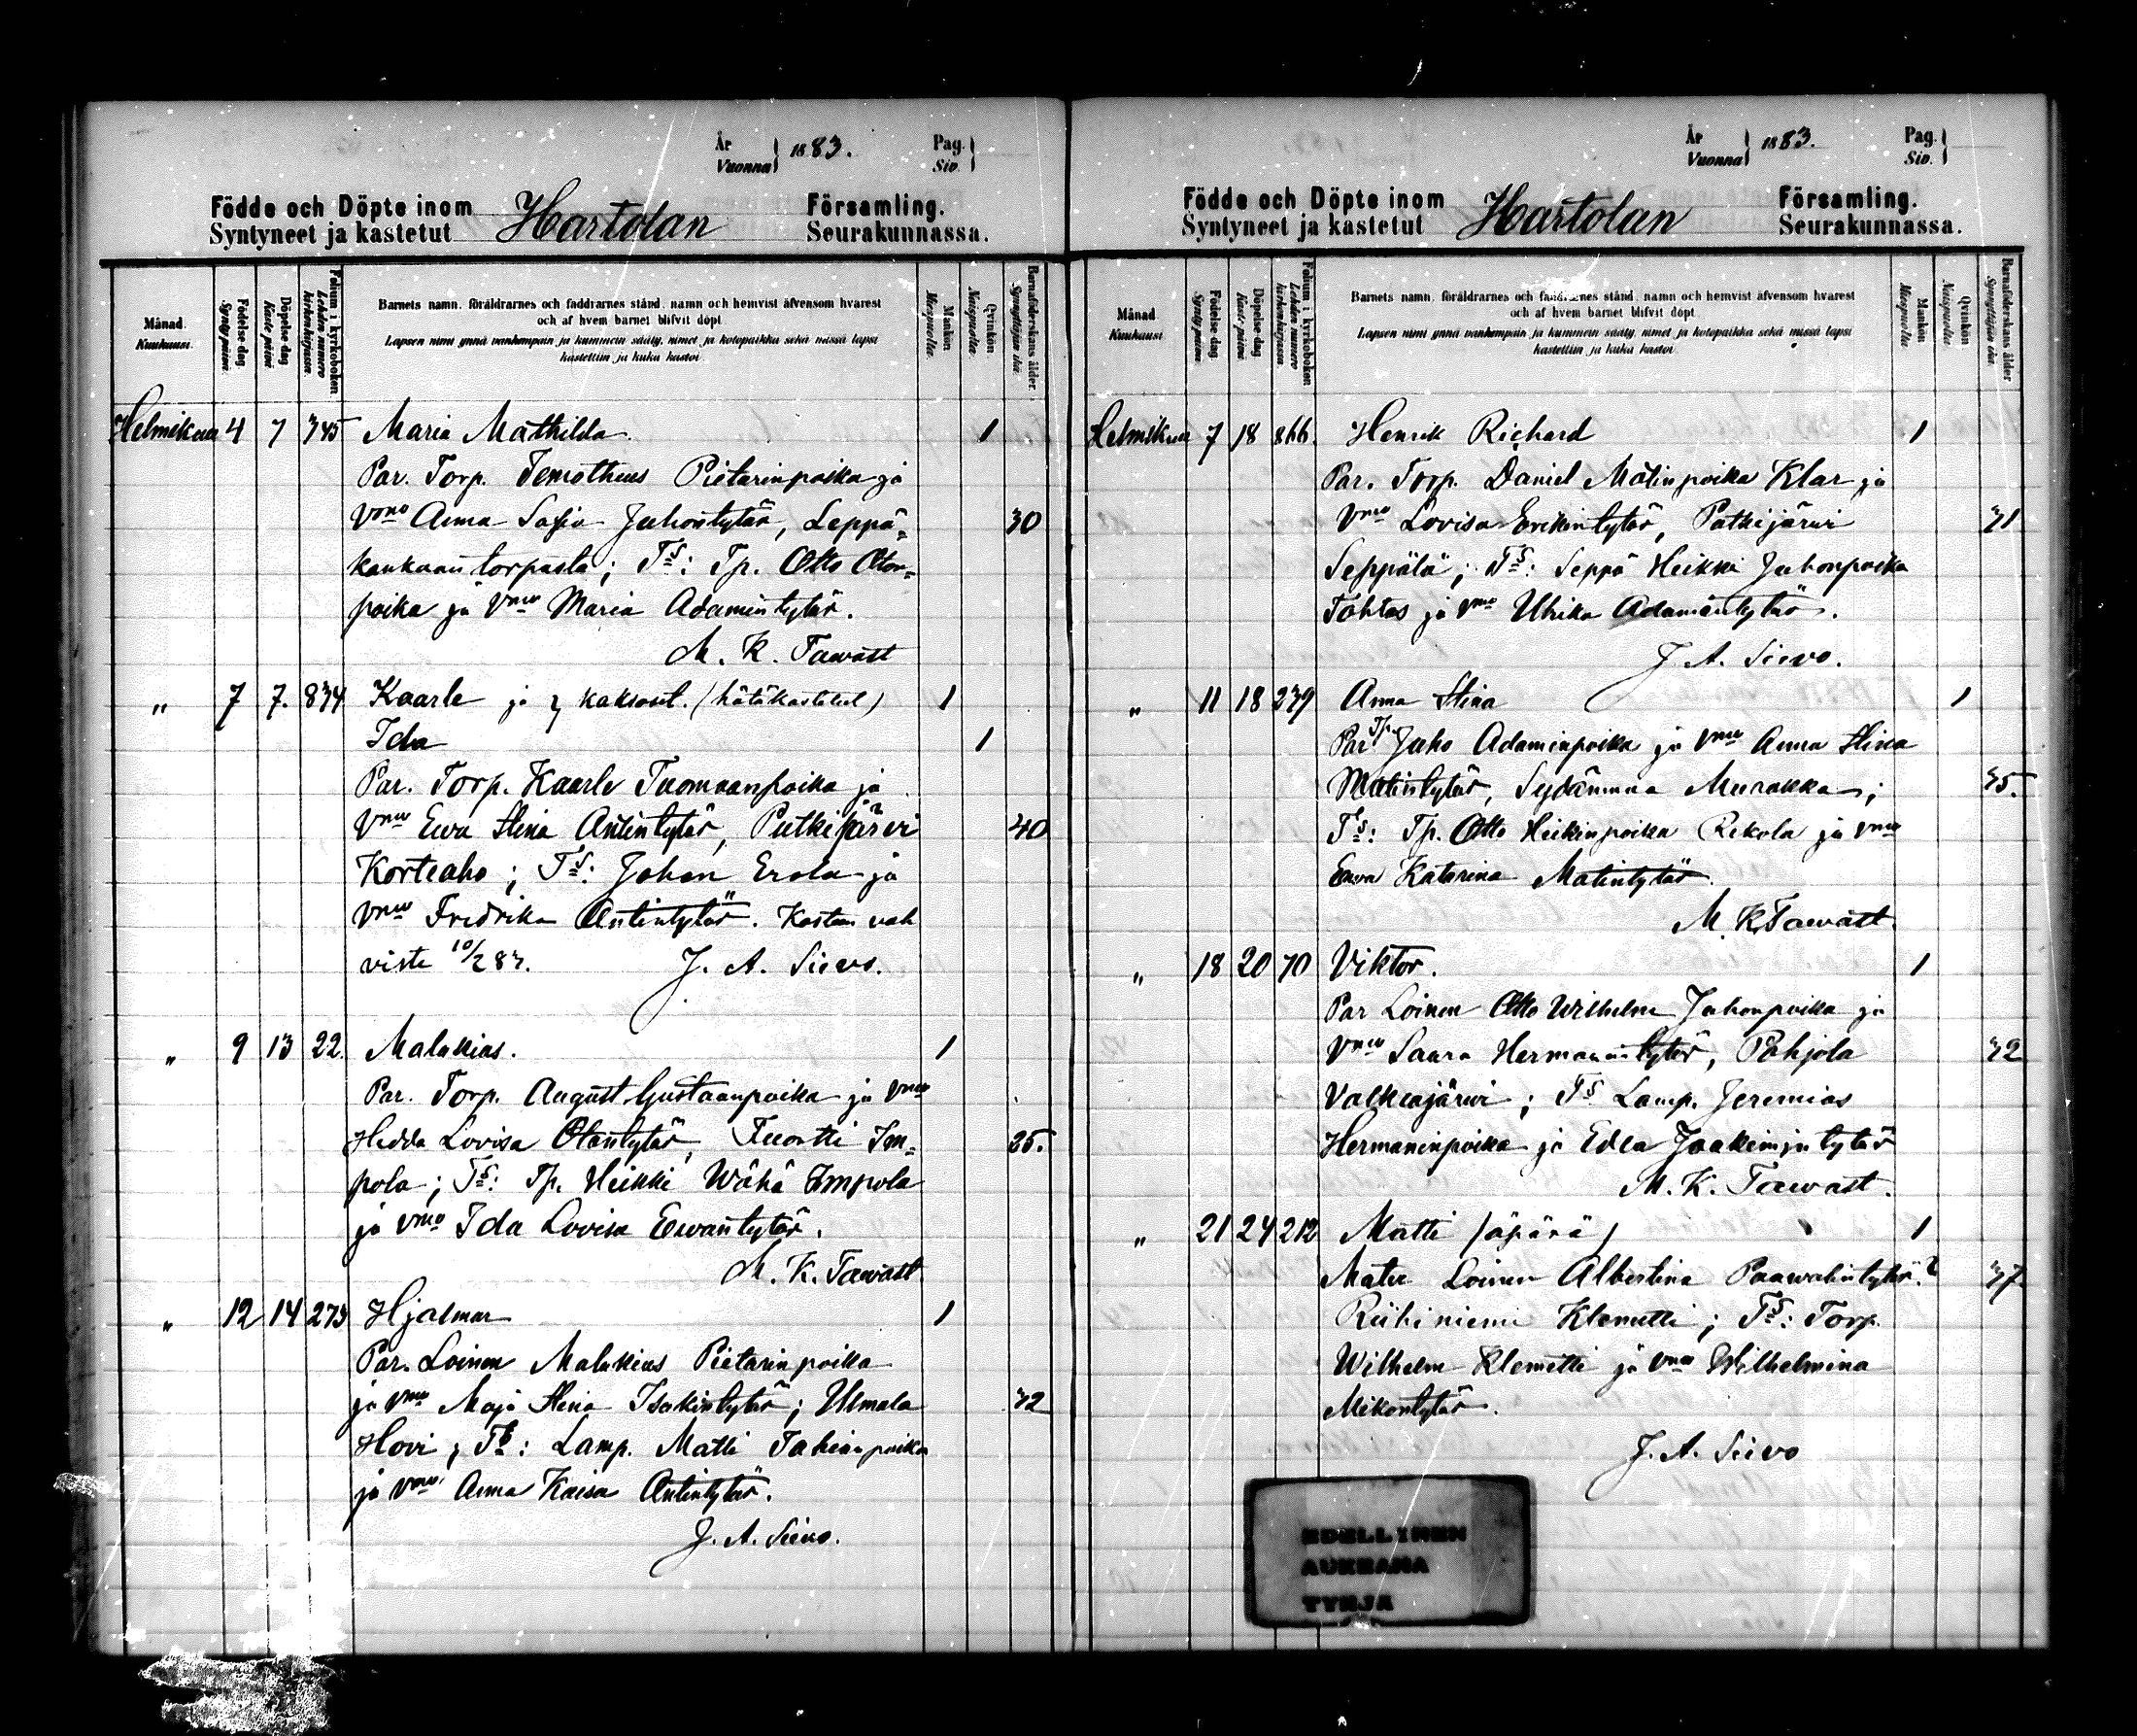 År
Vuonna 1883.
Pag.
Siv.
Födde och Döpte inom
Syntyneet ja kastetut
Hartolan
Församling.
Seurakunnassa.
Månad.
Kuukausi.
Födelse-dag
Synty-päivä.
Döpelse-dag
Kaste-päivä
Folium i kyrkoboken
Lehden numero
kirkonkirjassa.
Barnets namn, föräldrarnes och faddrarnes stånd, namn och hemvist äfvensom hvarest
och af hvem barnet blifvit döpt.
Lapsen nimi ynnä vanhempain ja kummein sääty, nimet ja kotopaikka sekä missä lapsi
kastettiin ja kuka kastoi.
Mankön
Miespuolta.
Qvinkön
Naispuolta.
Barnaföderskans ålder.
Synnyttäjän ikä.
Helmikuu 4 7 345 Maria Mathilda. 1
Par. Torp. Temotheus Pietarinpoika ja
Vmo Anna Sofia Juhontytär, Leppä= 30
kankaan torpasta; Ts: Tp. Otto Oton=
poika ja Vmo Maria Adamintytär.
M. K. Tawast
" 7 7. 834 Kaarle ja } kaksoset. (hätäkastetut) 1
Ida 1
Par. Torp. Kaarle Tuomaanpoika ja
Vmo Ewa Stina Antintytär, Putkijärvi 40
Korteaho; Ts: Johan Erola ja
Vmo Fredrika Antintytär. Kasteen vah
viste 10/2 83. J. A. Sievo.
" 9 13 22. Malakias. 1
Par. Torp. August Gustaanpoika ja Vmo
Hedda Lovisa Otontytär, Tuontti Im= 25.
pola; Ts: Tp. Heikki Wähä Impola
ja Vmo Ida Lovisa Eewantytär.
M. K. Tawast
" 12 14 273 Hjalmar 1
Par. Loinen Malakias Pietarinpoika
ja Vmo Maja Stina Isakintytär; Ulmala 32
Hovi; Ts: Lamp. Matti Tahvanpoika
ja Vmo Anna Kaisa Antintytär.
J. A. Sievo.
År
Vuonna 1883.
Pag.
Siv.
Födde och Döpte inom
Syntyneet ja kastetut
Hartolan
Församling.
Seurakunnassa.
Månad
Kuukausi
Födelse-dag
Synty-päivä.
Döpelse-dag
Kaste-päivä
Folium i kyrkoboken
Lehden numero
kirkonkirjassa.
Barnets namn, föräldrarnes och faddrarnes stånd, namn och hemvist äfvensom hvarest
och af hvem barnet blifvit döpt.
Lapsen nimi ynnä vanhempain ja kummein sääty, nimet ja kotopaikka sekä missä lapsi
kastettiin ja kuka kastoi.
Mankön
Miespuolta.
Qvinkön
Naispuolta.
Barnaföderskans ålder
Synnyttäjän ikä.
Helmikuu 7 18 866. Henrik Richard 1
Par. Torp. Daniel Matinpoika Klar ja
Vmo Lovisa Erikintytär, Patkijärvi 31
Seppälä; Ts: Seppä Heikki Juhonpoika
Tohtas ja Vmo Ulrika Adamintytär.
J. A. Sievo.
" 11 18 239 Anna Stina 1
Par Tp. Juho Adaminpoika ja Vmo Anna Stina
Matintytär, Sydänmaa Murakka; 35.
Ts: Tp. Otto Heikinpoika Rekola ja Vmo
Eewa Katarina Matintytär.
M. K. Tawast.
" 18 20 70 Viktor. 1
Par Loinen Otto Wilhelm Juhonpoika ja
Vmo Saara Hermanintytär, Pohjola 32
Valkeajärvi; Ts Lamp. Jeremias
Hermaninpoika ja Edla Joakimintytär
M. K. Tawast.
" 21 24 212 Matti /äpärä/ 1
Mater Loinen Albertina Paawalintytär. 37
Riihiniemi Klemetti; Ts: Torp.
Wilhelm Klemetti ja Vmo Wilhelmina
Mikontytär.
J. A. Sievo
EDELLINEN
AUKEAMA
TYHJÄ